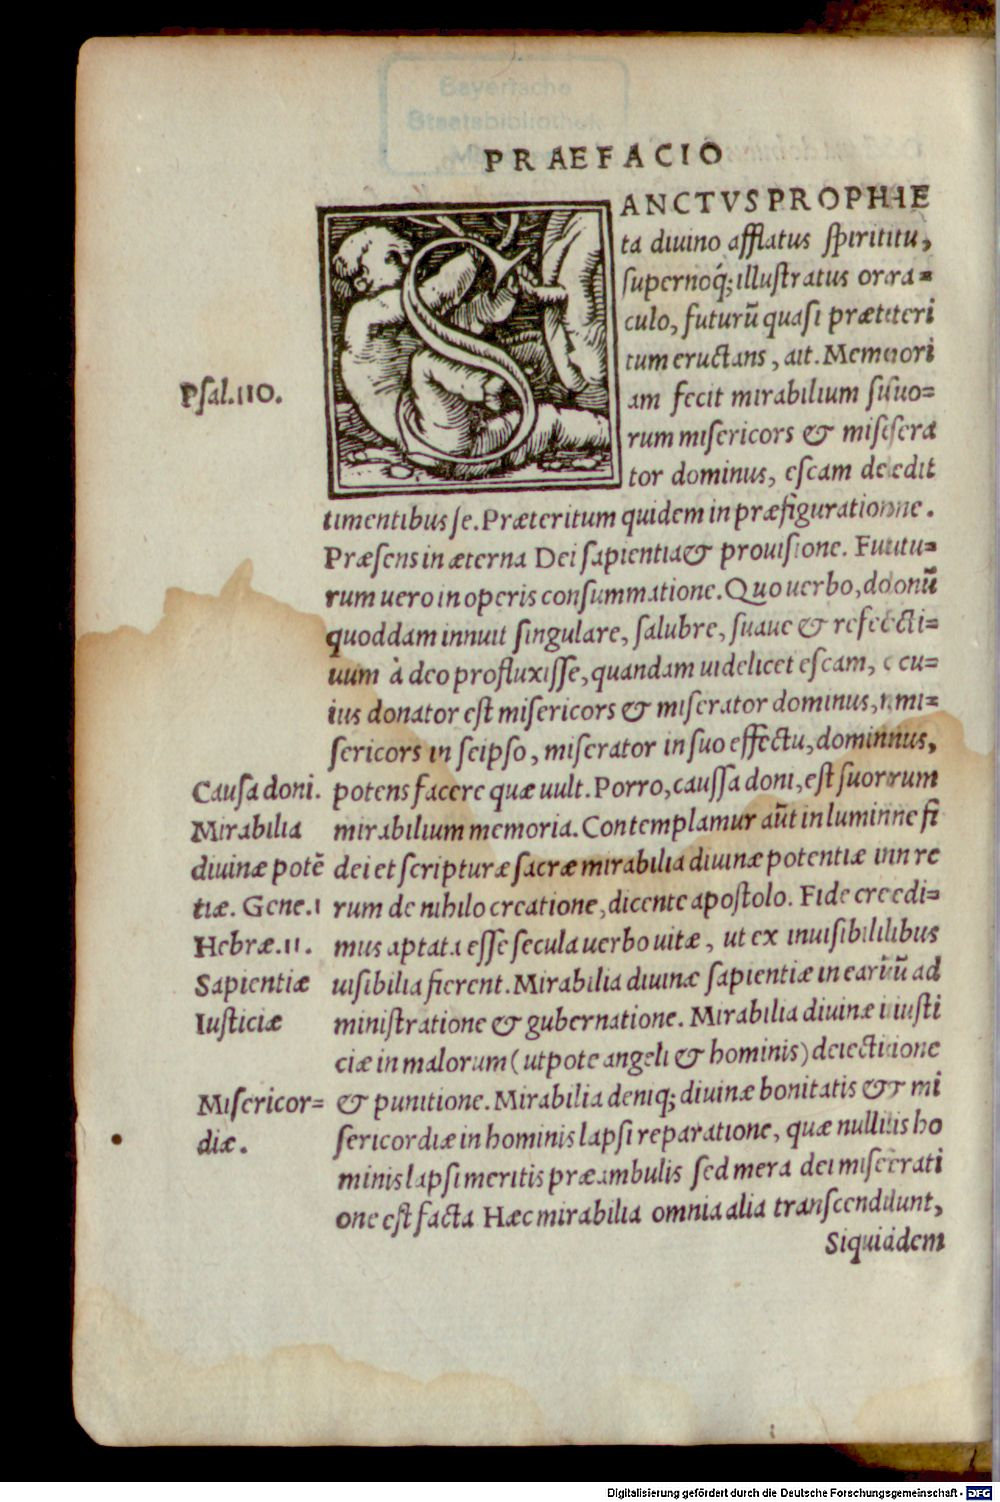 Bayerische
Staatsbibliothek
PRAEFACIO
SANCTVS PROPHE
ta diuino afflatus spiritu,
supernoq́; illustratus ora=
culo, futurū quasi præteri
tum eructans, ait. Memori
am fecit mirabilium suo=
rum misericors & misera
tor dominus, escam dedit
Psal.110.
timentibus se. Præteritum quidem in præfiguratione.
Præsens in æterna Dei sapientia & prouisione. Futu=
rum uero in operis consummatione. Quo uerbo, donū
quoddam innuit singulare, salubre, suaue & refecti=
uum à deo profluxisse, quandam uidelicet escam, cu=
ius donator est misericors & miserator dominus, mi=
sericors in seipso, miserator in suo effectu, dominus,
Causa doni. potens facere quæ uult. Porro, caussa doni, est suorum
Mirabilia mirabilium memoria. Contemplamur aūt in lumine fi
diuinæ potē dei et scripturæ sacræ mirabilia diuinæ potentiæ in re
tiæ. Gene.1 rum de nihilo creatione, dicente apostolo. Fide credi=
Hebræ.11. mus aptata esse secula uerbo uitæ, ut ex inuisibilibus
Sapientiæ uisibilia fierent. Mirabilia diuinæ sapientiæ in earū ad
Iusticiæ ministratione & gubernatione. Mirabilia diuinæ iusti
ciæ in malorum (utpote angeli & hominis) deiectione
Misericor= & punitione. Mirabilia deniq; diuinæ bonitatis & mi
diæ. sericordiæ in hominis lapsi reparatione, quæ nullis ho
minis lapsi meritis præambulis sed mera dei miserati
one est facta Hæc mirabilia omnia alia transcendunt,
Siquidem
Digitalisierung gefördert durch die Deutsche Forschungsgemeinschaft - DFG